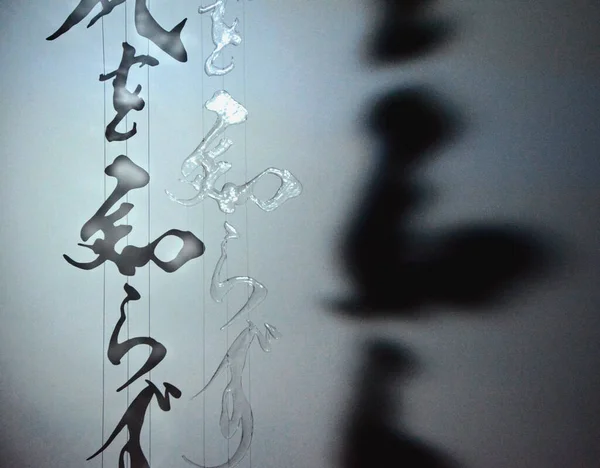 を知らず
を知らず